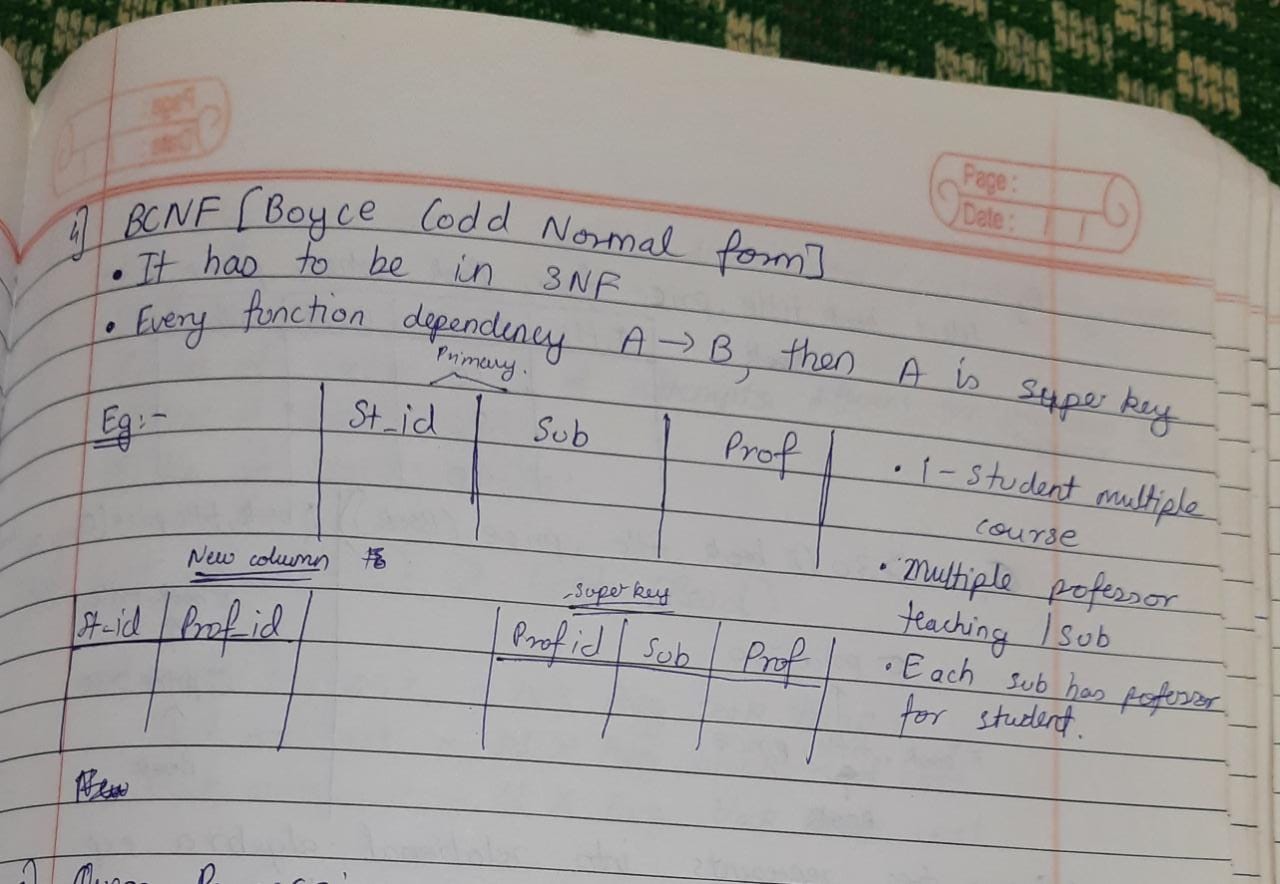 Page:
Date:
4] BCNF [Boyce Codd Normal form]
• It has to be in 3NF
• Every function dependency A → B, then A is super key
Primary.
Eg:- St_id Sub Prof
• 1 - Student multiple
course
• Multiple pofessor
teaching 1 sub
• Each sub has pofessor
for student.
New column
St-id Prof-id
super key
Prof id Sub Prof